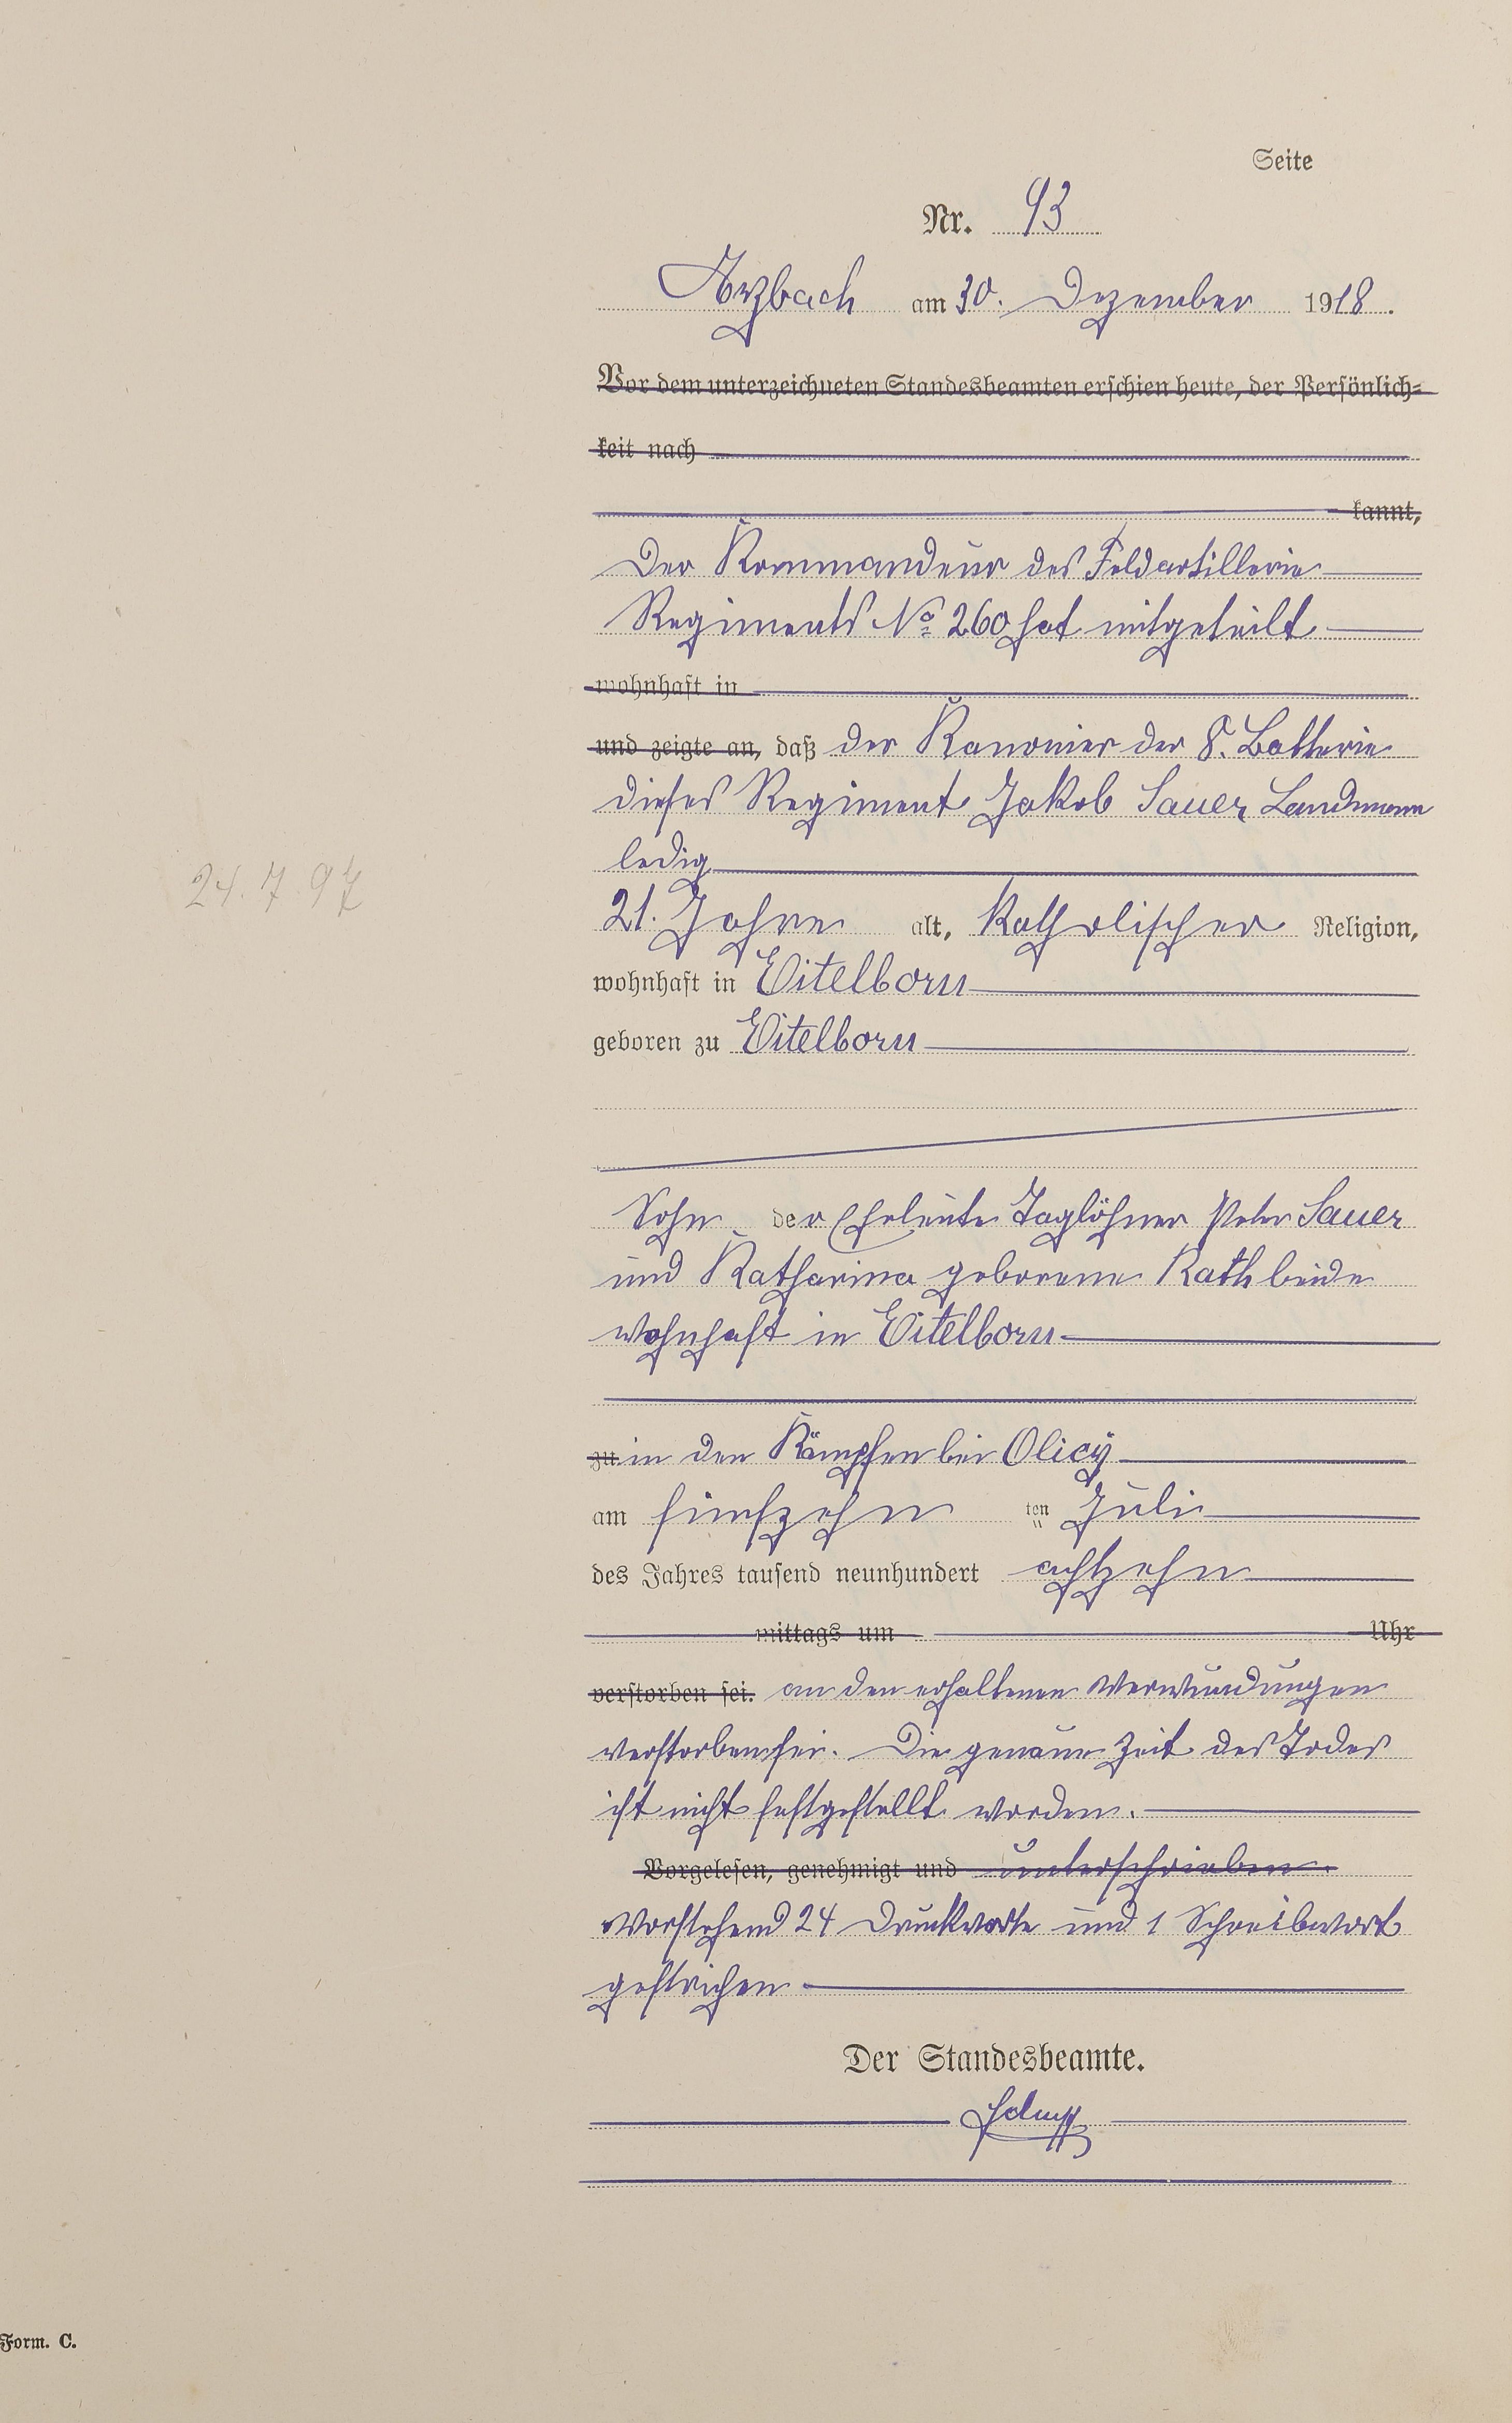 Seite
Nr. 93
Arzbach am 30. Dezember 1918.
Vor dem unterzeichneten Standesbeamten erschien heute, der Persönlich-
keit nach
kannt,
Der Kommandeur des Feldartillerie
Regiments No 260 hat mitgeteilt
wohnhaft in
und zeigte an, daß der Kanonier der 8. Batterie
dieses Regiment Jakob Sauer Landmann
ledig
24. 7. 97
21. Jahre alt, katholischer Religion,
wohnhaft in Eitelborn
geboren zu Eitelborn
Sohn der Eheleute Taglöhner Peter Sauer
und Katharina geborene Rath beide
wohnhaft in Eitelborn
zu in den Kämpfen bei Olicy
am fünfzehn ten Juli
des Jahres tausend neunhundert achtzehn
mittags um Uhr
verstorben sei. an den erhaltenen Verwundungen
verstorben sei. Die genaue Zeit des Todes
ist nicht festgestellt worden.
Vorgelesen, genehmigt und unterschrieben.
Vorstehend 24 Druckworte und 1 Schreibwort
gestrichen
Der Standesbeamte.
Form. C.